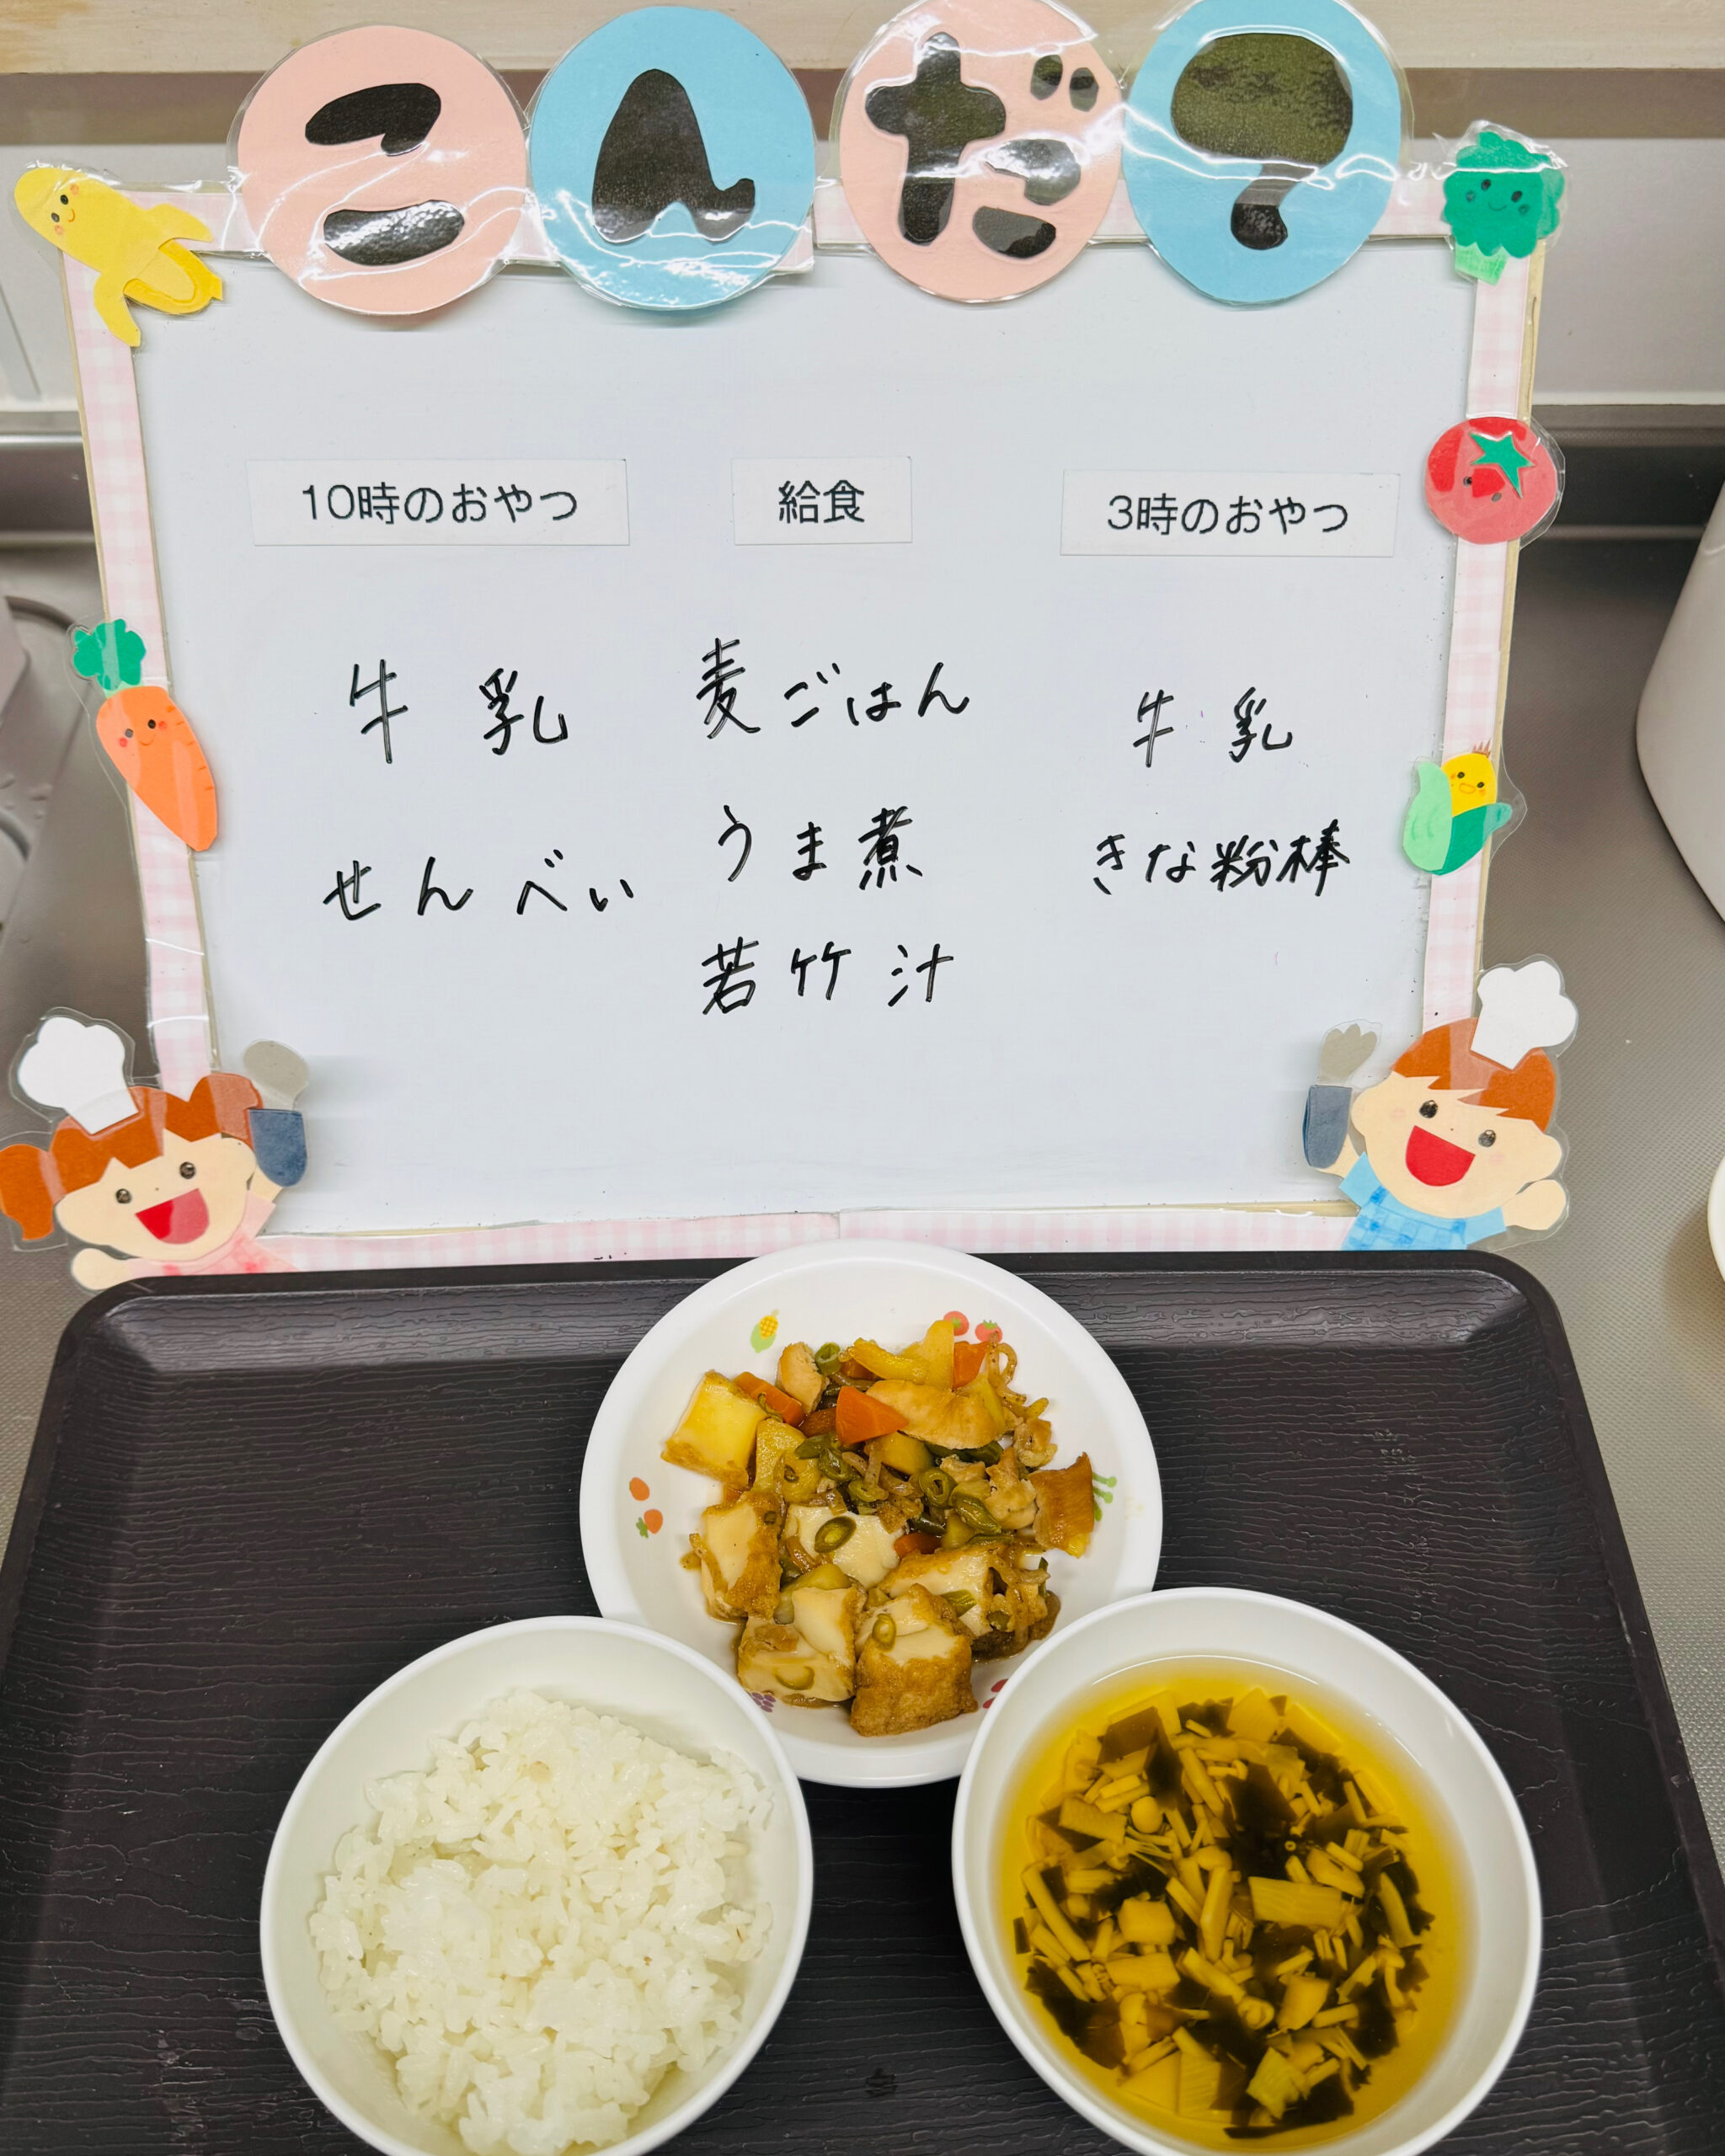 こんだて
10時のおやつ
牛乳
せんべい
給食
麦ごはん
うま煮
若竹汁
3時のおやつ
牛乳
きな粉棒